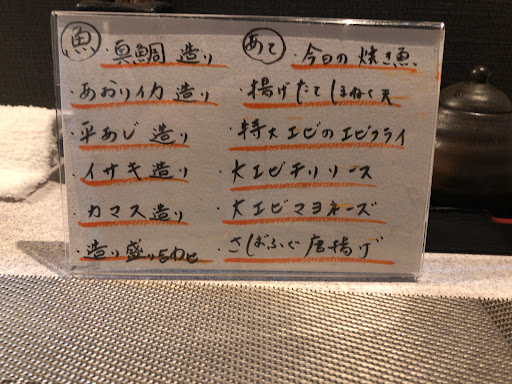 魚
・真鯛 造り
・あおりイカ 造り
・平あじ 造り
・イサキ造り
・カマス造り
・造り盛り合わせ
あて
・今日の焼き魚
・揚げたて 天
・特大エビのエビフライ
・大エビチリソース
・大エビマヨネーズ
・さばふぐ唐揚げ